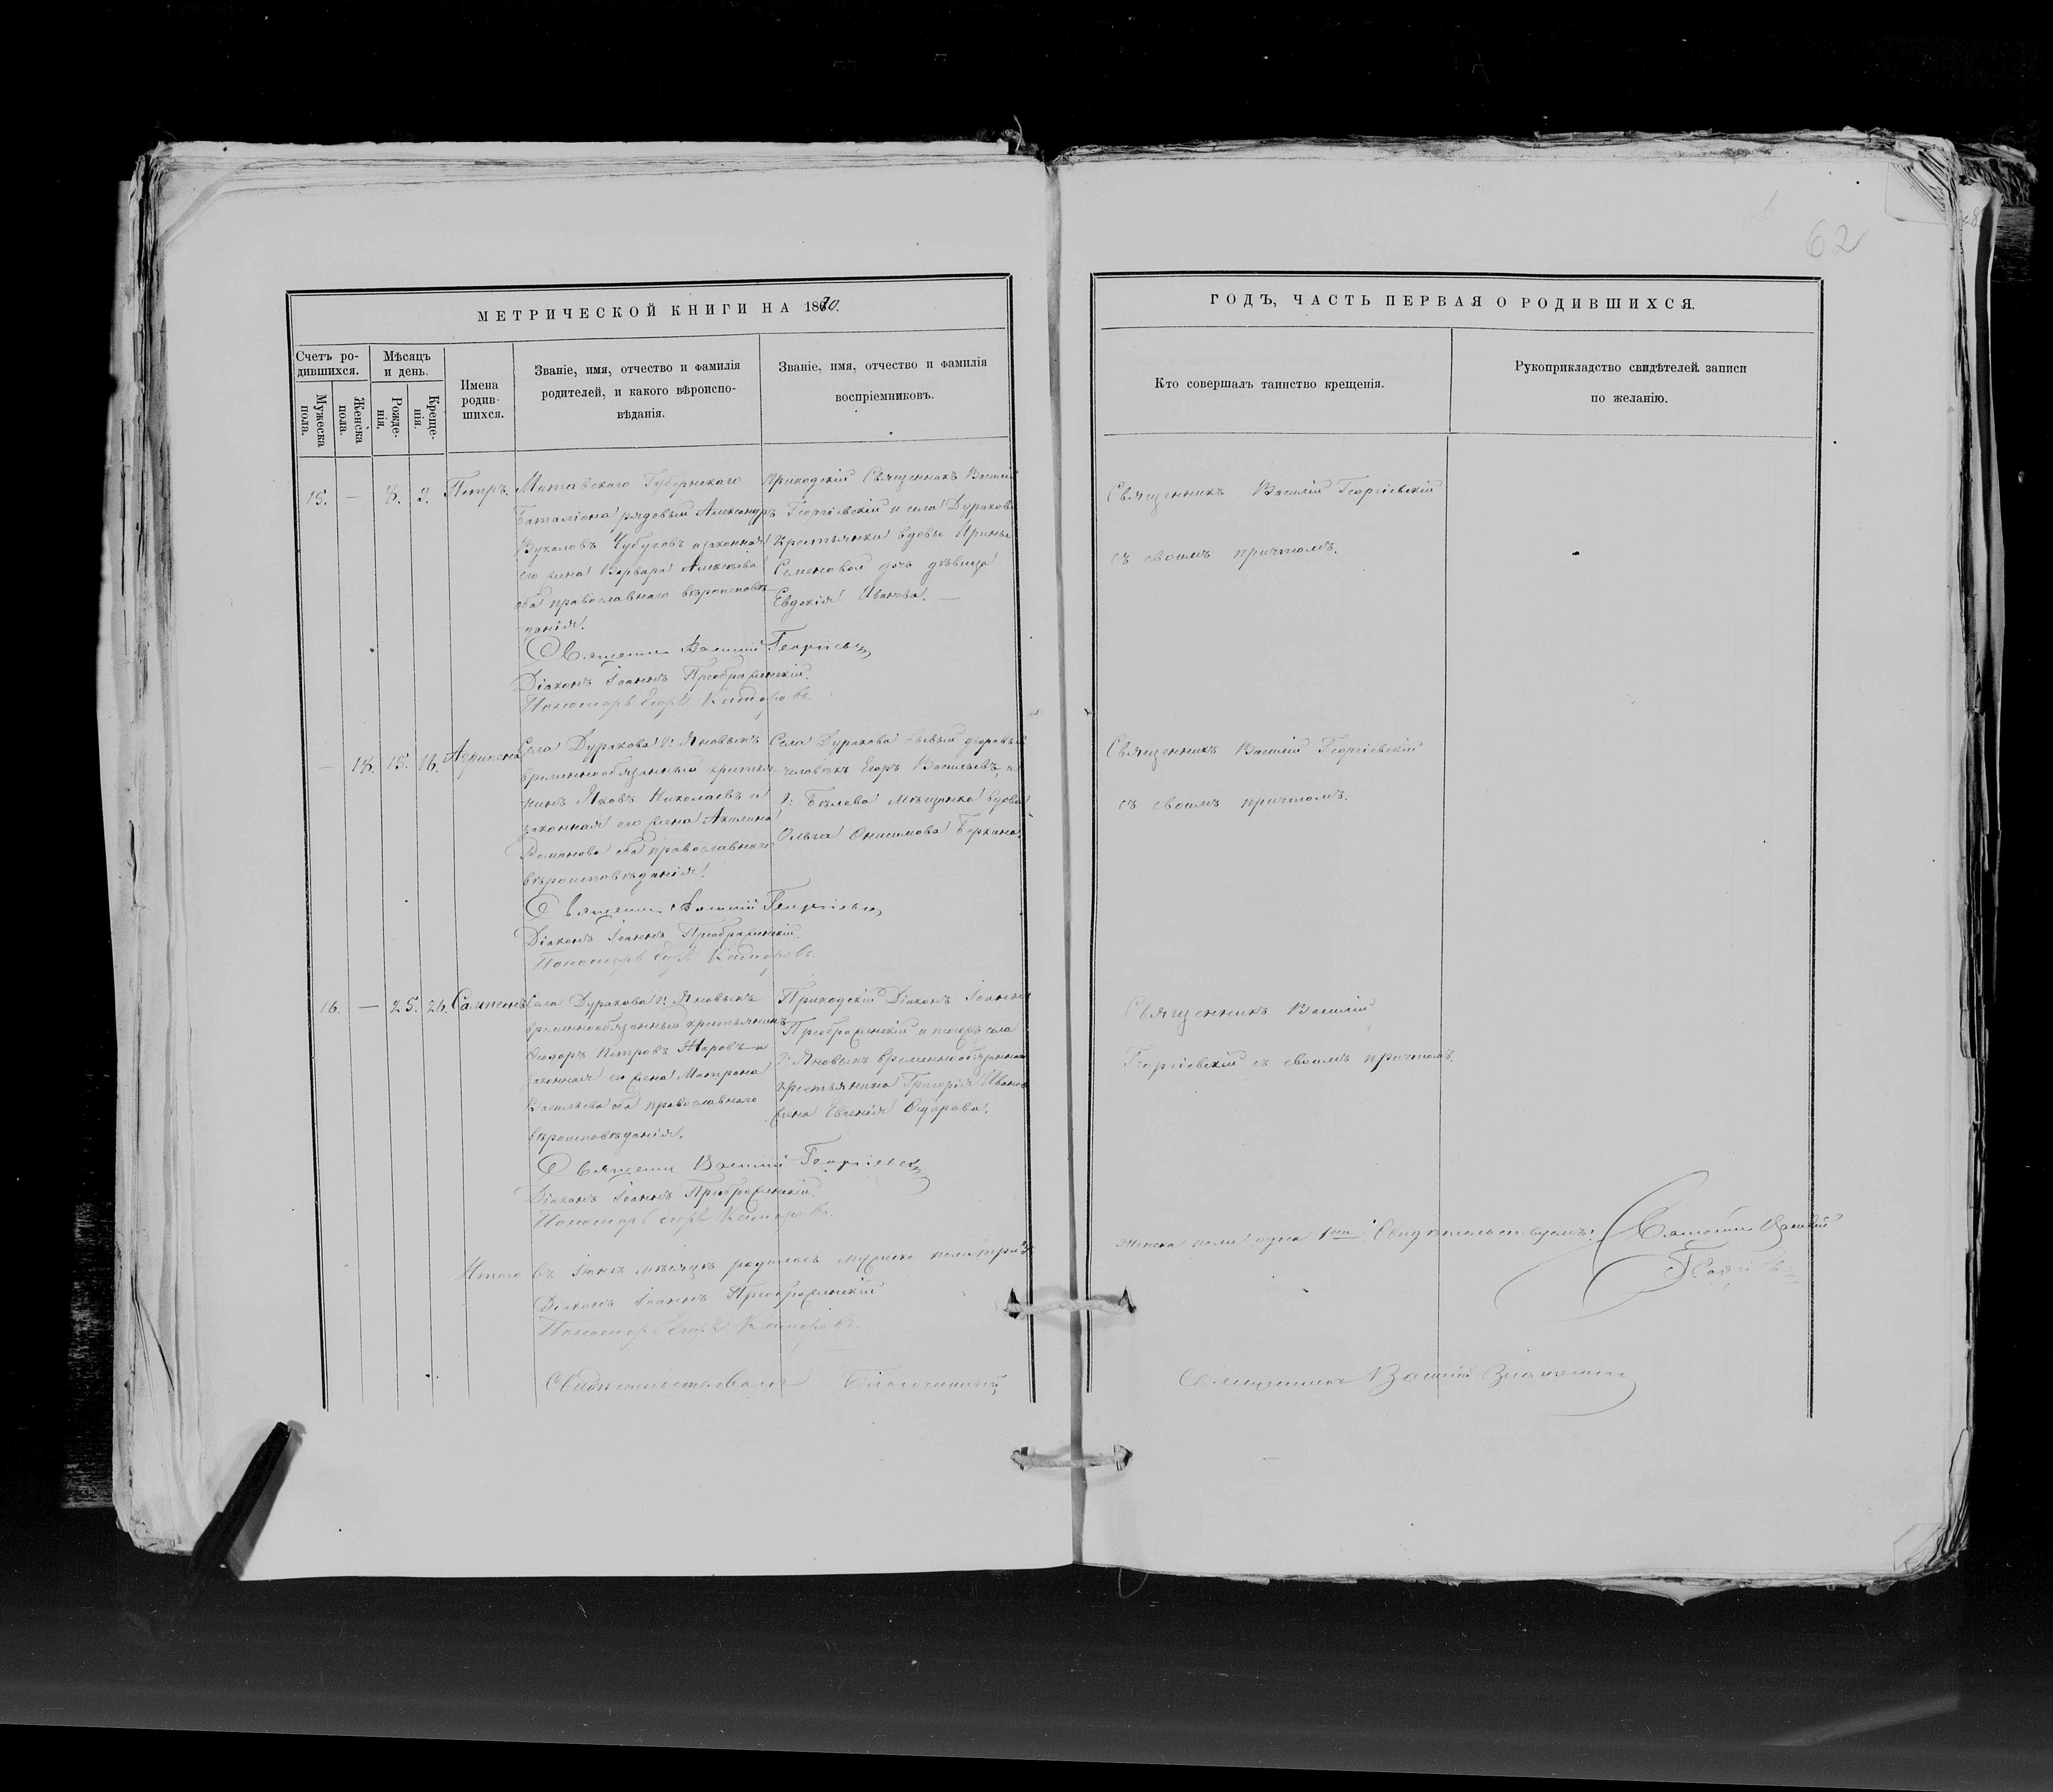 62
МЕТРИЧЕСКОЙ КНИГИ НА 1870.
Счетъ ро-
дившихся.
Мужеска
пола.
Женска
пола.
Мѣсяцъ
и день.
Рожде-
нія.
Креще-
нія.
Имена
родив-
шихся.
Званіе, имя, отчество и фамилія
родителей, и какого вѣроиспо-
вѣданія.
Званіе, имя, отчество и фамилія
воспріемниковъ.
ГОДЪ, ЧАСТЬ ПЕРВАЯ О РОДИВШИХСЯ.
Кто совершалъ таинство крещенія.
Рукоприкладство свидѣтелей записи
по желанію.
15. — 8. 9. Петръ.
Митавскаго Губернскаго
Баталіона рядовый Александръ
Вуколовъ Чубуковъ и законная
его жена Варвара Алексѣева
оба православнаго вѣроисповѣ-
данія.
Приходскій Священникъ Василій
Георгіевскій и села Дуракова
крестьянки вдовы Ирины
Семеновой дочь дѣвица
Евдокія Иванова. —
Священникъ Василій Георгіевскій
съ своимъ причтомъ.
Священникъ Василій Георгіевск
Діаконъ Іоаннъ Преображенскій.
Пономарь Егоръ
— 14. 15. 16. Агрипена
Села Дуракова г: Яновыхъ
временнообязанный крестья-
нинъ Яковъ Николаевъ и
законная его жена Акилина
Романова оба православнаго
вѣроисповѣданія.
Села Дуракова бывый дворовый
человѣкъ Егоръ Васильевъ, и
г: Бѣлева Мѣщанка вдова
Ольга Онисимова Беркина.
Священникъ Василій Георгіевскій
съ своимъ причтомъ.
Священникъ Василій Георгіевск
Діаконъ Іоаннъ Преображенскій.
Пономарь Егоръ
16. — 25. 26. Сампсонъ
Села Дуракова г: Яновыхъ
временнообязанный крестьянинъ
Ѳеодоръ Петровъ и
законная его жена Матрона
Васильева оба православнаго
вѣроисповѣданія.
Приходскій Діаконъ Іоаннъ
Преображенскій и тогожъ села
г: Яновыхъ временнообязаннаго
крестьянина Григорія Иванова
жена Евгенія Ѳедорова.
Священникъ Василій
Георгіевскій съ своимъ причтомъ.
Священникъ Василій Георгіевск
Діаконъ Іоаннъ Преображенскій.
Пономарь Егоръ
Итого въ Іюнѣ мѣсяцѣ родилось мужеска пола три
женска пола одна 1на Свидѣтельствуемъ: Священникъ Василій
Георгіевск
Діаконъ Іоаннъ Преображенскій
Пономарь Егоръ
Свидѣтельствовалъ Благочинный
Священникъ Василій